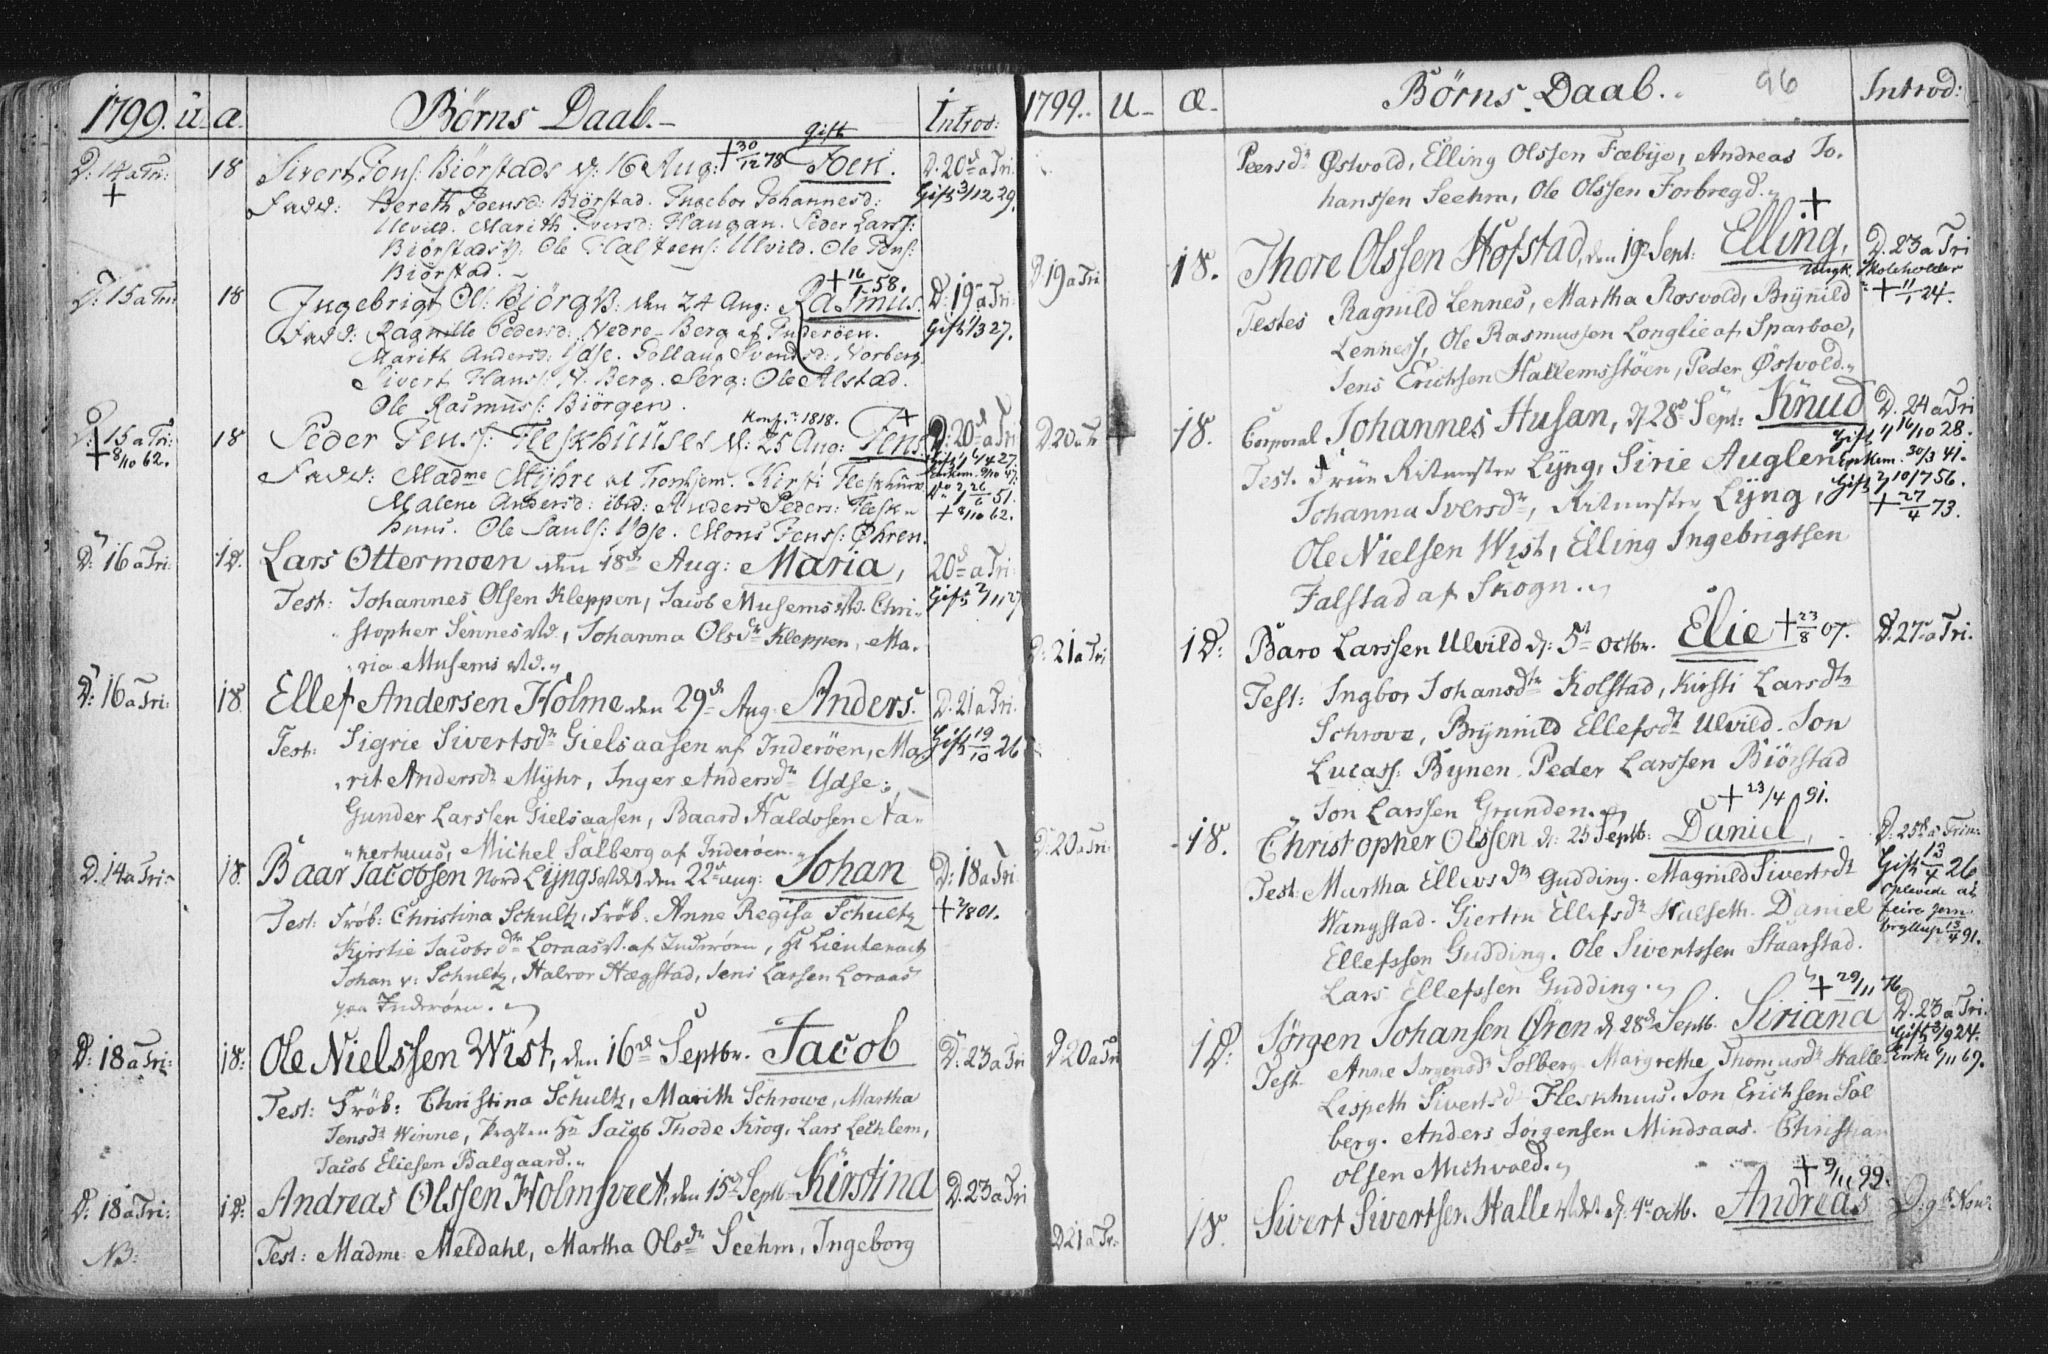 1799. u. a. Börns Daab.– Introd:
D. 14 a Tri: 18 Sivert Jons: Biörstads d: 16 Aug: +30/12 78 gift Joen. D. 20 a Tri:
+ Fadd: Bereth Joensd: Biörstad. Ingebor Johannesd: Gift 3/12 29.
Ulvild. Marith Iversd: Haugan. Peder Lars:
Biörstads Ole Halstens: Ulvild. Ole Jons:
Biörstad. +16/1 58.
D: 15 a Tri 18 Ingebrigt Ol: Biörgs: den 24 Aug: Rasmus. D: 19 a Tri:
Fadd: Ragnille Pedersd: Nedre-Berg af Inderöen. Gift 1/3 27.
Marith Andersd: Ydse. Gollaug Svendsd: Norberg
Sivert Hans: N. Berg. Serg: Ole Alstad.
Ole Rasmus: Biörgen. Konf. 1818. +
D: 15 a Tri: 18 Peder Jens: Fleskhuuses d: 25 Aug: Jens D: 20 a Tri
+ 8/10 62. Fadd: Madme Myhre af Tronhjem. Kirsti Fleskhuus
Malene Andersd: ibid: Anders Peders: Flesk- 51.
huus. Ole Pauls: Ydse. Mons Jens: Öhren. + 8/10 62.
D: 16 a Tri: 1D. Lars Ottermoen den 18 Aug: Maria, 20 a Tri:
Test: Johannes Olsen Kleppen, Jacob Musems Chri- Gift 2/11 27
stopher Sennes, Johanna Olsdr Kleppen, Ma-
ria Musems
D: 16 a Tri: 18 Ellef Andersen Holme den 29 Aug. Anders. D. 21 a Tri.
Test: Sigrie Sivertsdr Gielsaasen af Inderöen, Ma- Gift 19/10 26
rit Andersdr Myhr, Inger Andersdr Ydse,
Gunder Larssen Gielsaasen, Baard Haldosen Aa-
kerhuus, Michel Salberg af Inderöen.
D. 14 a Tri- 18. Baar Jacobsen Nord Lyngs den 22 aug: Johan D: 18 a Tri
Test: Fröb: Christina Schultz, Fröb. Anne Regisa Schultz + 2/8 01.
Kirstie Jacobsdr Loraas af Inderöen, Hr Lieutenant
Johan v: Schultz, Halvor Hægstad, Jens Lassen Loraas
paa Inderöen.
D: 18 a Tri: 18: Ole Nielssen Wist, den 16 Septbr. Jacob D: 23 a Tri
Test: Fröb: Christina Schultz, Marith Schrowe, Martha
Jensdr Winne, Hr Jacob Thode Krog, Lars Lechlem,
Jacob Eliesen Balgaard.
D: 18 a Tri: 1D: Andreas Olssen Holmsveet, den 15 Septb. Kirstina D. 23 a Tri
NB: Test: Madme Meldahl, Martha Olsdr Seehm, Ingeborg
1799. U- Æ. Börns. Daab. 96 Introd:
Peersdr Östvold, Elling Olssen Fæbye, Andreas Jo-
hanssen Seehm, Ole Olssen Forbregd. +
D 19 a Tri 18. Thore Olssen Hofstad, den 19 Sept: Elling, D. 23 a Tri
ungk. Skoleholder
Testes Ragnild Lennes, Martha Rosvold, Brynild + 11/1 24.
Lenness, Ole Rasmussen Longlie af Sparboe,
Jens Erichsen Hallemsstöen, Peder Östvold.
D 20 a Tr + 18. Corporal Johannes Husan, d 28 Sept: Knud D. 24 a Tri
Gift 1 16/10 28.
Test. Frue Ritmester Lyng, Sirie Auglen Enkem. 30/3 41.
Johanna Iversdr, Ritmester Lyng, Gift 2 10/7 56.
+ 27/4 73.
Ole Nielsen Wist, Elling Ingebrigtsen
Falstad af Skogn.
D: 21 a Tri 1D: Baro Larssen Ulvild d: 5 octbr. Elie + 23/8 07. D. 27 a Tri.
Test: Ingbor Johansdtr Kolstad, Kirsti Larsdtr
Schrove, Brynnild Ellefsdtr Ulvild. Jon
Lucass: Bynen. Peder Larssen Biörstad
Jon Larssen Grunden. + 23/4 91.
D: 20 a Tri: 18. Christopher Olssen d: 25 Septb: Daniel, D: 25 a Trin:
Test: Martha Ellevsdtr Gudding. Magnild Sivertsdr Gift 13/4 26
Wangstad. Giertru Ellefsdr Halseth. Daniel Oplevede at feire jern-
Ellefssen Gudding. Ole Sivertssen Staarstad. bryllup 13/4 91.
Lars Ellefssen Gudding. + 29/11 76
D 20 a Tri 1D: Jörgen Johansen Ören d 28 Septb. Siriana D. 23 a Tri.
Gift 3/9 24.
Test. Anne Jörgensdr Solberg. Margrethe Thomasdr Halle Enke 6/11 69.
Lispeth Sivertsd Fleskhuus. Jon Erichsen Sol
berg. Anders Jörgensen Mindsaas. Christian
olsen Michvold. + 9/11 99.
D 21 a Tr. 18. Sivert Sivertsen Halle d: 4 octb. Andreas D: 9 Nov: